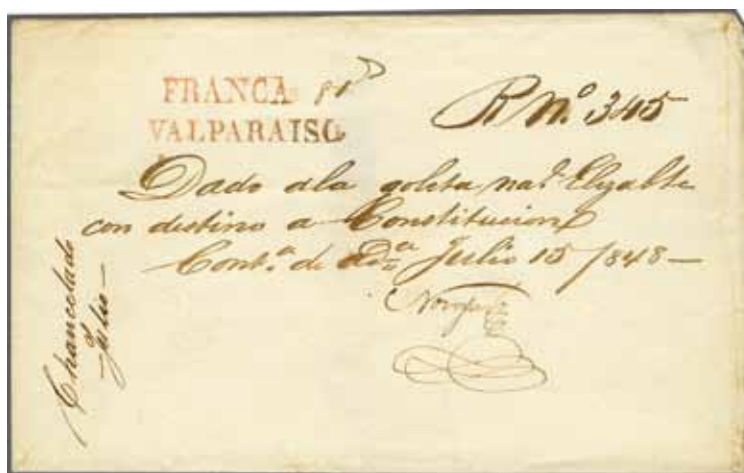 FRANCA
VALPARAISO
R Nº 345
Dado ala goleta nal. Elizabte
con destino a Constitucion
Contª de Adª Julio 15/848—
Chancelado
Julio—